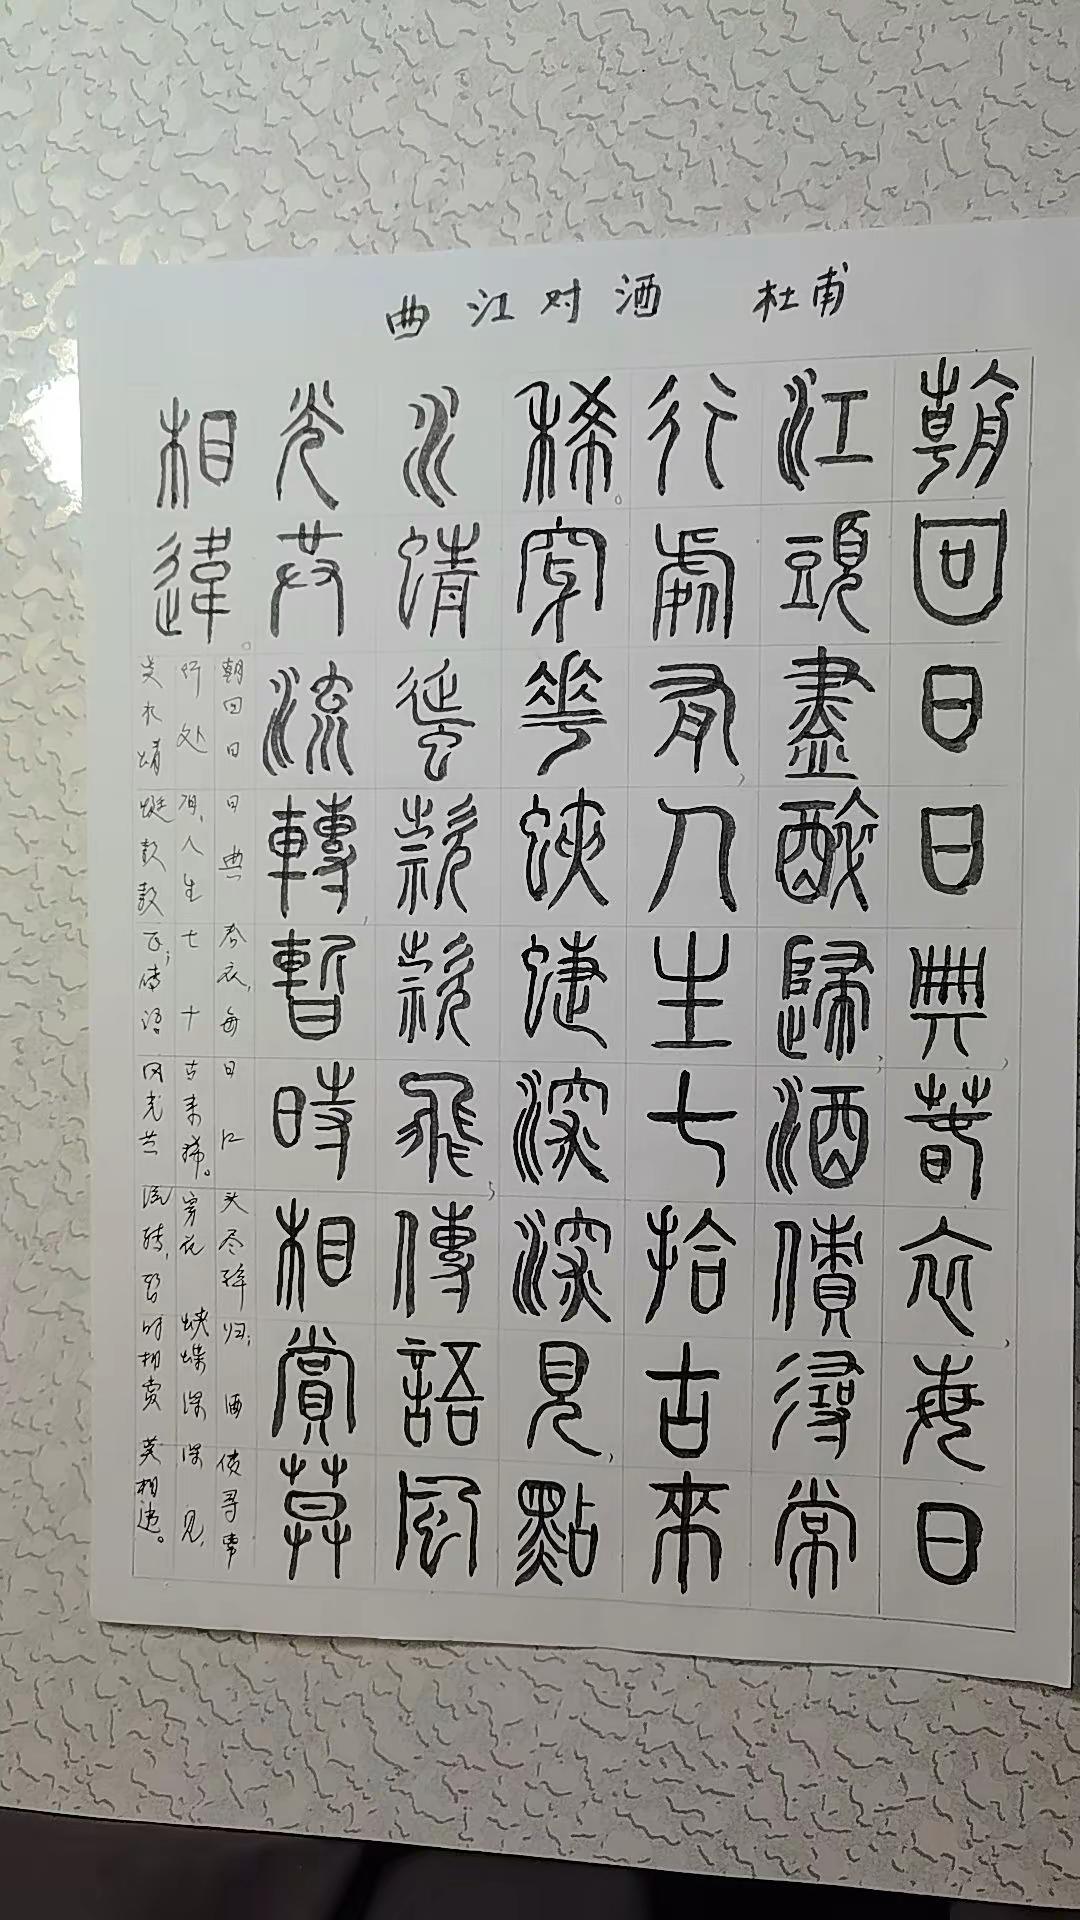 曲江对酒 杜甫
朝回日日典春衣,每日
江頭盡醉歸;酒債尋常
行處有,人生七拾古來
稀。穿花蛺蝶深深見,點
水蜻蜓款款飛;傳語風
光共流轉,暫時相賞莫
相違。
朝回日日典春衣,每日江头尽醉归;酒债寻常
行处有,人生七十古来稀。穿花蛱蝶深深见,
点水蜻蜓款款飞;传语风光共流转,暂时相赏莫相违。